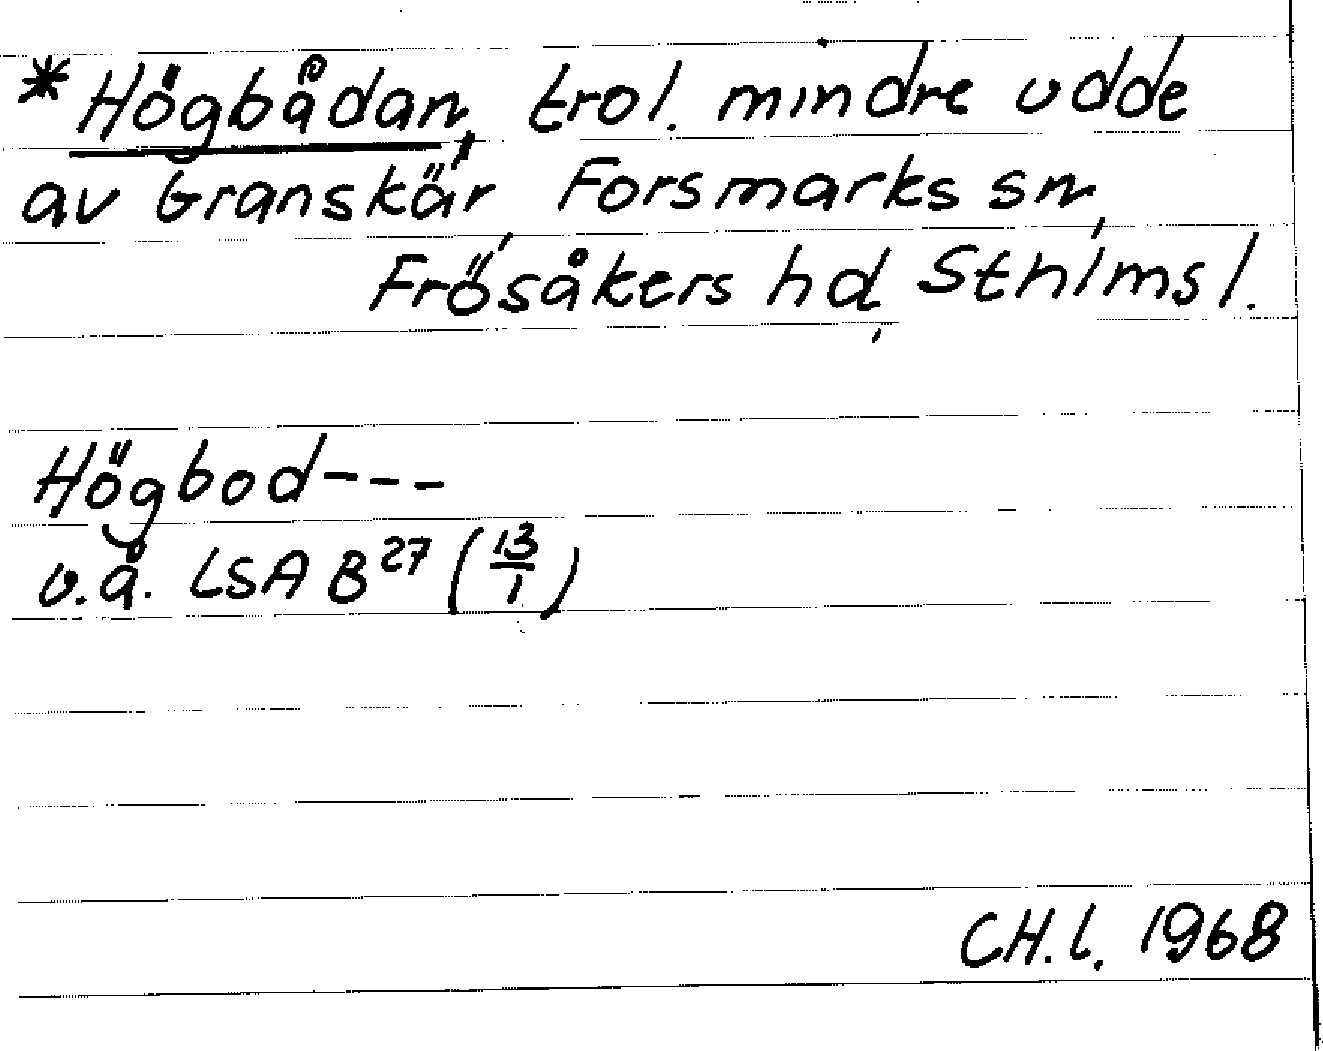 *Högbådan, trol. mindre udde
av Granskär, Forsmarks sn,
Frösåkers hd, Sthlms l.
Högbod---
u.å. LSA B27 (13/1)
CH.L. 1968